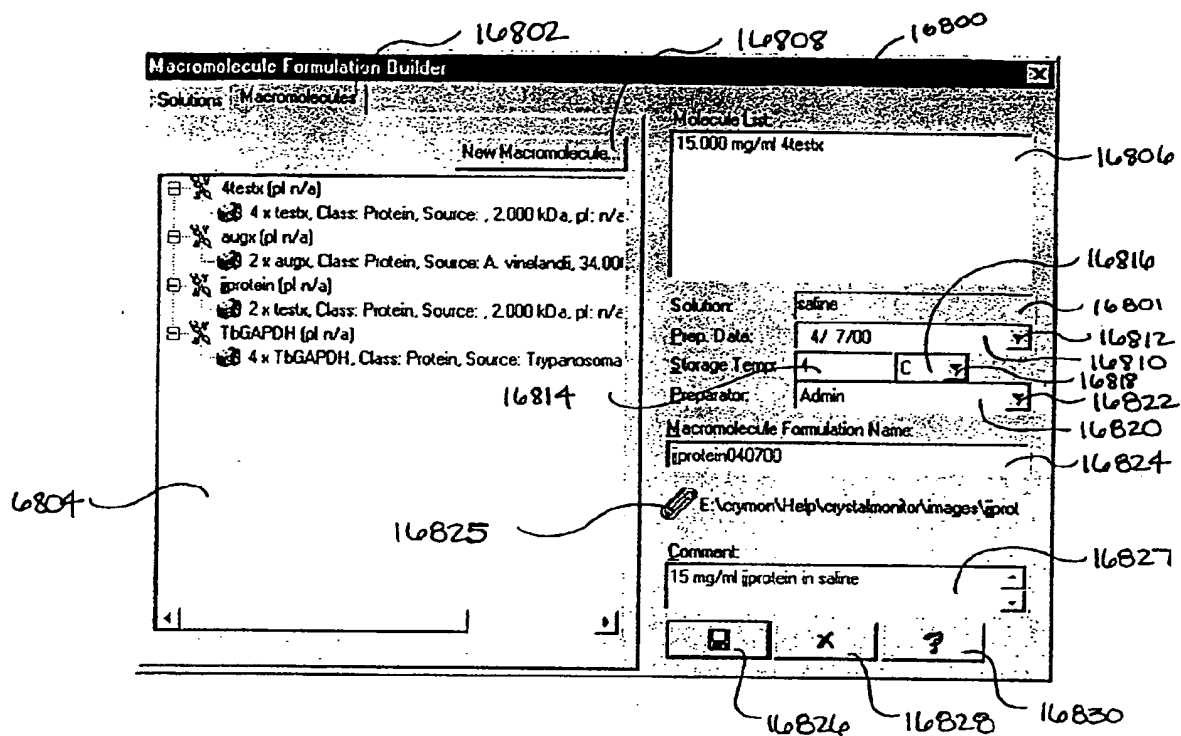 16802
16808
16800
Macromolecule Formulation Builder
Solutions Macromolecules
New Macromolecule...
4testx (pI n/a)
4 x testx, Class: Protein, Source: , 2.000 kDa, pI: n/a
augx (pI n/a)
2 x augx, Class: Protein, Source: A. vinelandii, 34.000
jjprotein (pI n/a)
2 x testx, Class: Protein, Source: , 2.000 kDa, pI: n/a
TbGAPDH (pI n/a)
4 x TbGAPDH, Class: Protein, Source: Trypanosoma
6804
Molecule List:
15.000 mg/ml 4testx
16806
16816
Solution: saline
16801
Prep. Date: 4/ 7/00
16812
16810
Storage Temp: 4 C
16814
16818
Preparator: Admin
16822
16820
Macromolecule Formulation Name:
jjprotein040700
16824
E:\crymon\Help\crystalmonitor\images\jjprot
16825
Comment:
15 mg/ml jjprotein in saline
16827
16826
16828
16830